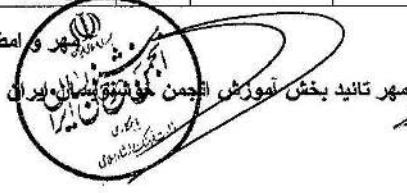 مهر و امض
مهر تائید بخش آموزش انجمن خوشنویسان ایران
انجمن خوشنویسان ایران